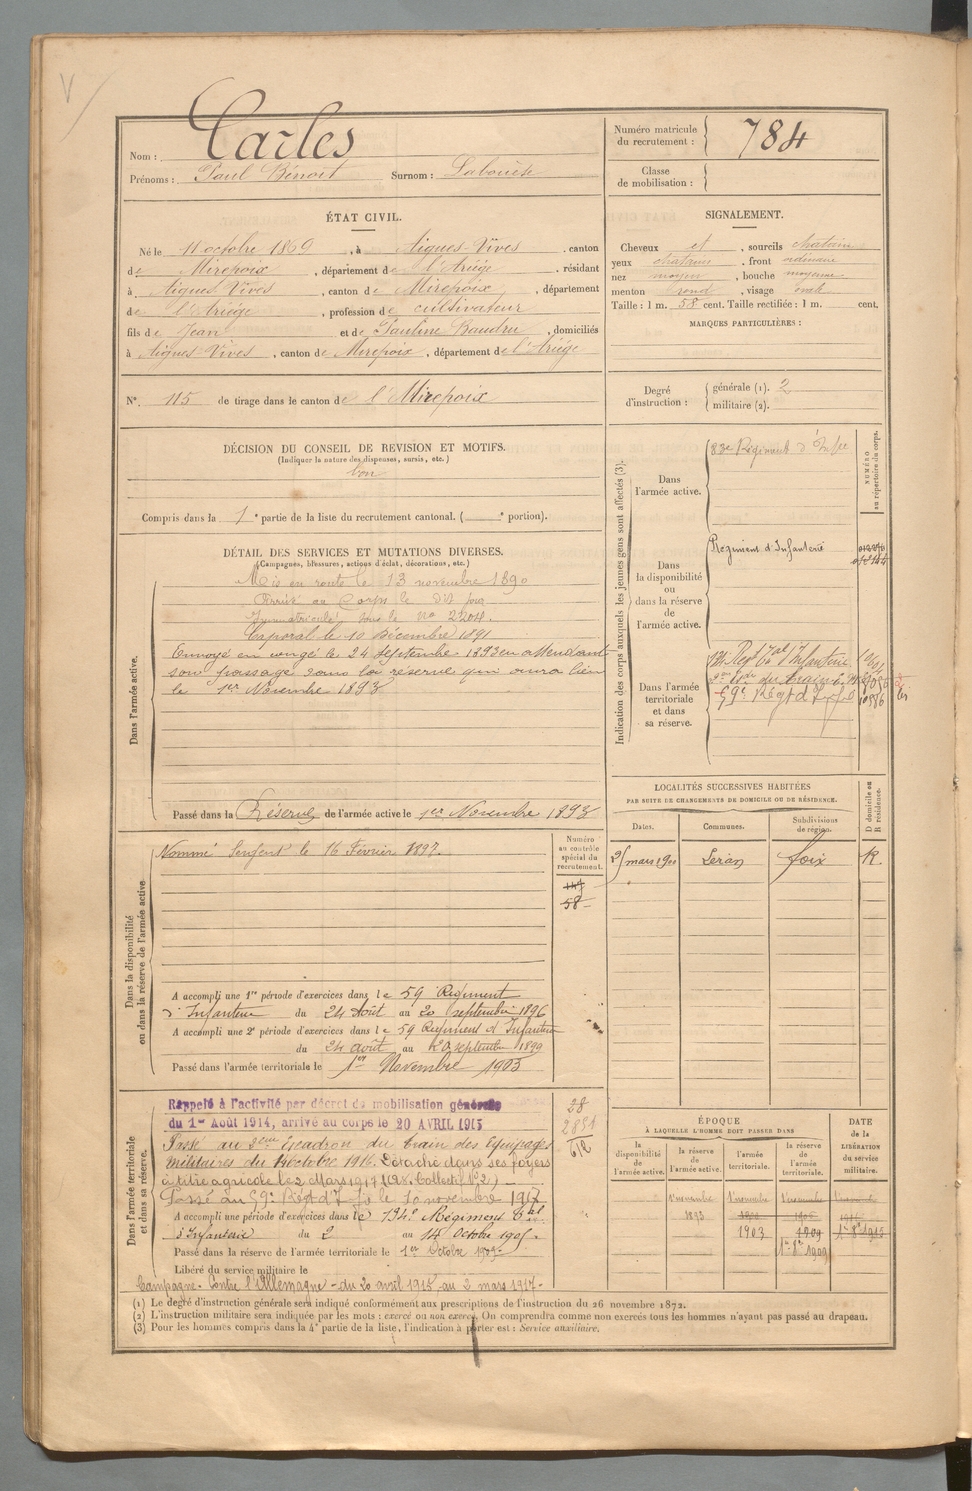 Nom : Carles
Prénoms : Paul Bénoit Surnom : Labouise
Numéro matricule du recrutement : 784
Classe de mobilisation :
ÉTAT CIVIL.
Né le 11 octobre 1869, à Aigues-Vives, canton
de Mirepoix, département de l'Ariége, résidant
à Aigues Vives, canton de Mirepoix, département
de l'Ariége, profession de cultivateur
fils de Jean et de Pauline Baudru, domiciliés
à Aigues-Vives, canton de Mirepoix, département de l'Ariége
N° 115 de tirage dans le canton de l' Mirepoix
SIGNALEMENT.
Cheveux et, sourcils chatains
yeux chatains, front ordinaire
nez moyen, bouche moyenne
menton rond, visage ovale
Taille : 1 m. 58 cent. Taille rectifiée : 1 m. cent.
MARQUES PARTICULIÈRES :
Degré d'instruction : générale (1). 2
militaire (2).
DÉCISION DU CONSEIL DE REVISION ET MOTIFS.
(Indiquer la nature des dispenses, sursis, etc.)
bon
Compris dans la 1e partie de la liste du recrutement cantonal. ( e portion).
DÉTAIL DES SERVICES ET MUTATIONS DIVERSES.
(Campagnes, blessures, actions d'éclat, décorations, etc.)
Dans l'armée active.
Mis en route le 13 novembre 1890
Arrivé au Corps le dit jour
Immatriculé sous le no 2204.
Caporal le 10 Décembre 1891
Envoyé en congé le 24 Septembre 1893 en attendant
son passage dans la réserve qui aura lieu
le 1er Novembre 1893
Passé dans la Réserve de l'armée active le 1er Novembre 1893
Dans la disponibilité ou dans la réserve de l'armée active
Nommé Sergent le 16 Février 1897.
Numéro au contrôle spécial du recrutement.
58
A accompli une 1re période d'exercices dans le 59 Régiment
d'Infanterie du 24 Août au 20 septembre 1896
A accompli une 2e période d'exercices dans le 59 Régiment d'Infanterie
du 24 août au 20 septembre 1899
Passé dans l'armée territoriale le 1er Novembre 1903
Dans l'armée territoriale et dans sa réserve.
Rappelé à l'activité par décret de mobilisation générale
du 1er Août 1914, arrivé au corps le 20 AVRIL 1915
Passé au Escadron du train des équipages
militaires du octobre 1916. Détaché dans ses foyers
à titre agricole le 2 Mars 1917
Passé au 59e Régt d'Ife le 10 novembre 1917
A accompli une période d'exercices dans le 134e Régiment tal
d'Infanterie du 2 au 14 Octobre 1905.
Passé dans la réserve de l'armée territoriale le 1er Octobre 1909.
Libéré du service militaire le
Campagne. Contre l'Allemagne - du 20 avril 1915 au 2 mars 1917 -
28
Indication des corps auxquels les jeunes gens sont affectés (3).
NUMÉRO au répertoire du corps.
Dans l'armée active.
83e Régiment d'Infie
Dans la disponibilité ou dans la réserve de l'armée active.
Régiment d'Infanterie
Dans l'armée territoriale et dans sa réserve.
134e Régt tal d'Infanterie
59e Régt d'Ife
LOCALITÉS SUCCESSIVES HABITÉES
PAR SUITE DE CHANGEMENTS DE DOMICILE OU DE RÉSIDENCE.
Dates. Communes. Subdivisions de région. D domicile ou R résidence.
25 mars 1900 Leran foix R.
ÉPOQUE
À LAQUELLE L'HOMME DOIT PASSER DANS
DATE de la LIBÉRATION du service militaire.
la disponibilité de l'armée active.
la réserve de l'armée active.
l'armée territoriale.
la réserve de l'armée territoriale.
1er novembre 1er novembre 1er novembre 1er novembre
1893
1903 1909 1er 8bre 1915
1er 8bre 1909
(1) Le degré d'instruction générale sera indiqué conformément aux prescriptions de l'instruction du 26 novembre 1872.
(2) L'instruction militaire sera indiquée par les mots : exercé ou non exercé. On comprendra comme non exercés tous les hommes n'ayant pas passé au drapeau.
(3) Pour les hommes compris dans la 4e partie de la liste, l'indication à porter est : Service auxiliaire.